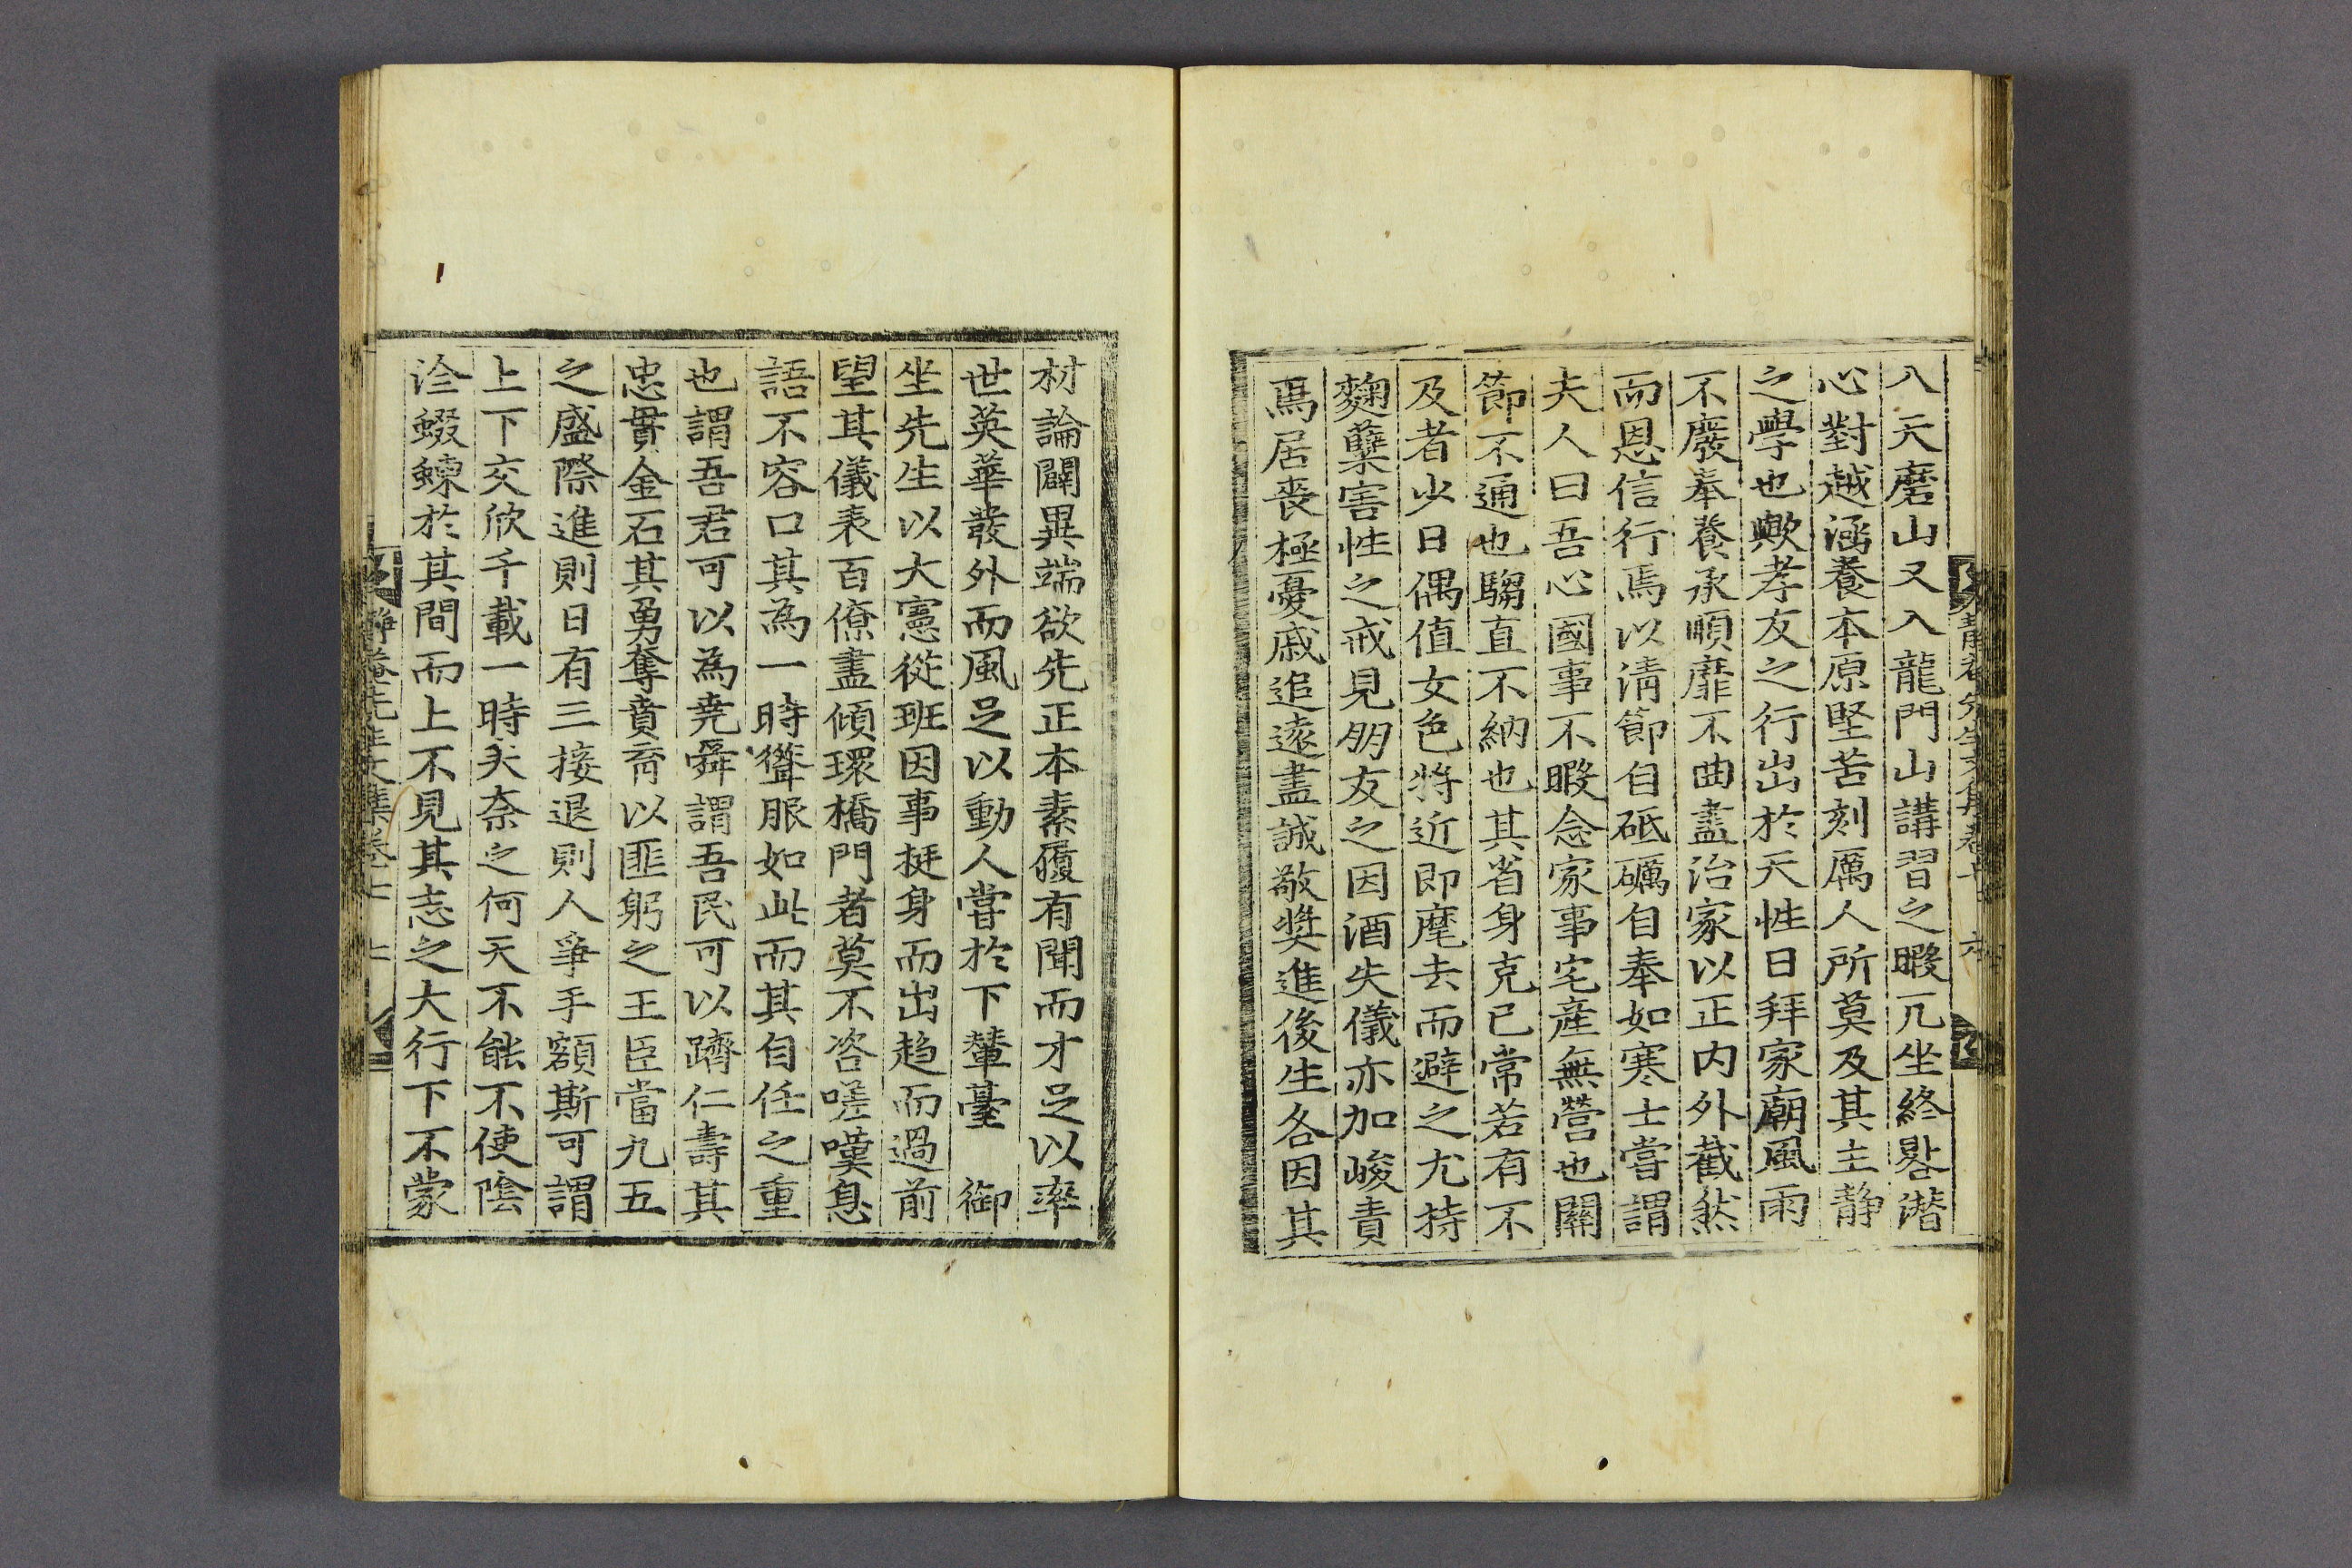 入天磨山又入龍門山講習之暇兀坐終晷潜
心對越涵養本原堅苦刻厲人所莫及其主静
之學也歟孝友之行出於天性日拜家廟風雨
不廢奉養承順靡不曲盡治家以正内外截然
而恩信行焉以淸節自砥礪自奉如寒士嘗謂
夫人曰吾心國事不暇念家事宅産無營也關
節不通也騶直不納也其省身克已常若有不
及者少日偶值女色將近即麾去而避之尤持
麴糵害性之戒見朋友之因酒失儀亦加峻責
焉居喪極憂戚追遠盡誠敬奬進後生各因其
材論闢異端欲先正本素履有聞而才足以率
世英華發外而風足以動人嘗於下輦臺 御
坐先生以大憲從班因事挺身而出趋而過前
望其儀表百僚盡傾環橋門者莫不咨嗟嘆息
語不容口其為一時聳服如此而其自任之重
也謂吾君可以為堯舜謂吾民可以躋仁壽其
忠貫金石其勇奪賁育以匪躬之王臣當九五
之盛際進則日有三接退則人爭手額斯可謂
上下交欣千載一時矣奈之何天不能不使陰
沴蝃蝀於其間而上不見其志之大行下不蒙
靜菴先生文集卷七 七